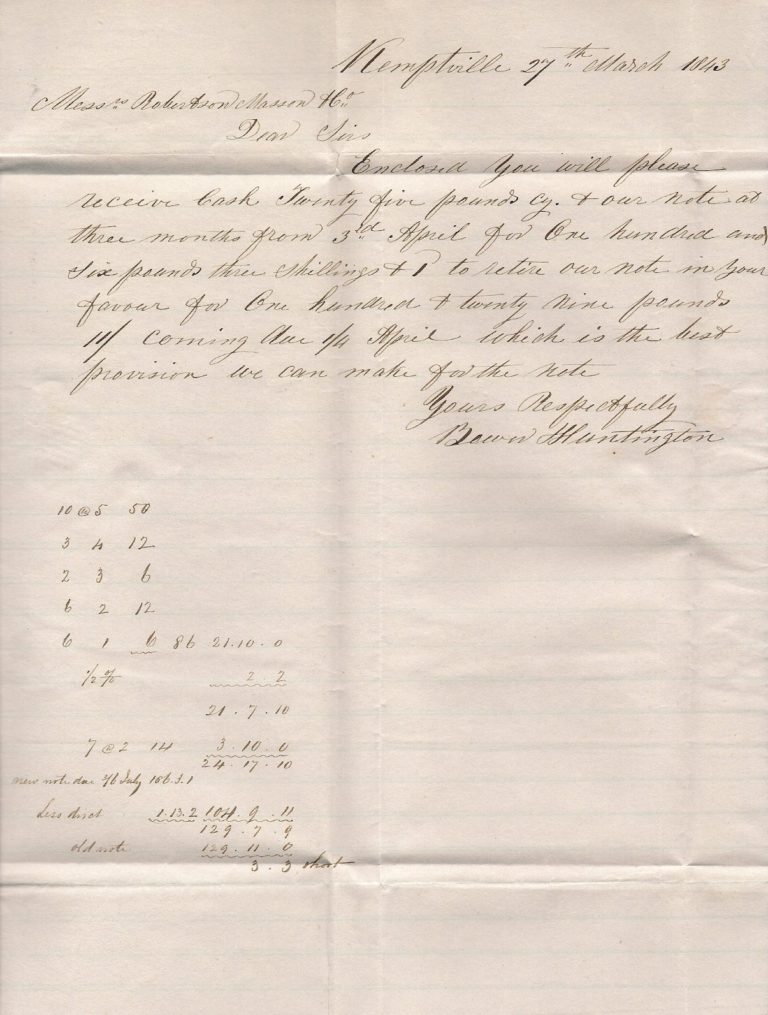 Kemptville 27th March 1843
Messrs Robertson Masson & Co
Dear Sirs
Enclosed You will please
receive Cash Twenty five pounds cy. & our note at
three months from 3rd April for One hundred and
Six pounds three Shillings & 1d to retire our note in Your
favour for One hundred & twenty Nine pounds
11/ coming due 1/4 April which is the best
provision we can make for the note
Yours Respectfully
Huntington
10 @ 5 50
3 4 12
2 3 6
6 2 12
6 1 6 86 21.10.0
1/2 % 2.2
21.7.10
7 @ 2 14 3.10.0
24.17.10
new note due 3/6 July 106.3.1
Less disct 1.13.2 104.9.11
129.7.9
old note 129.11.0
3.3 short